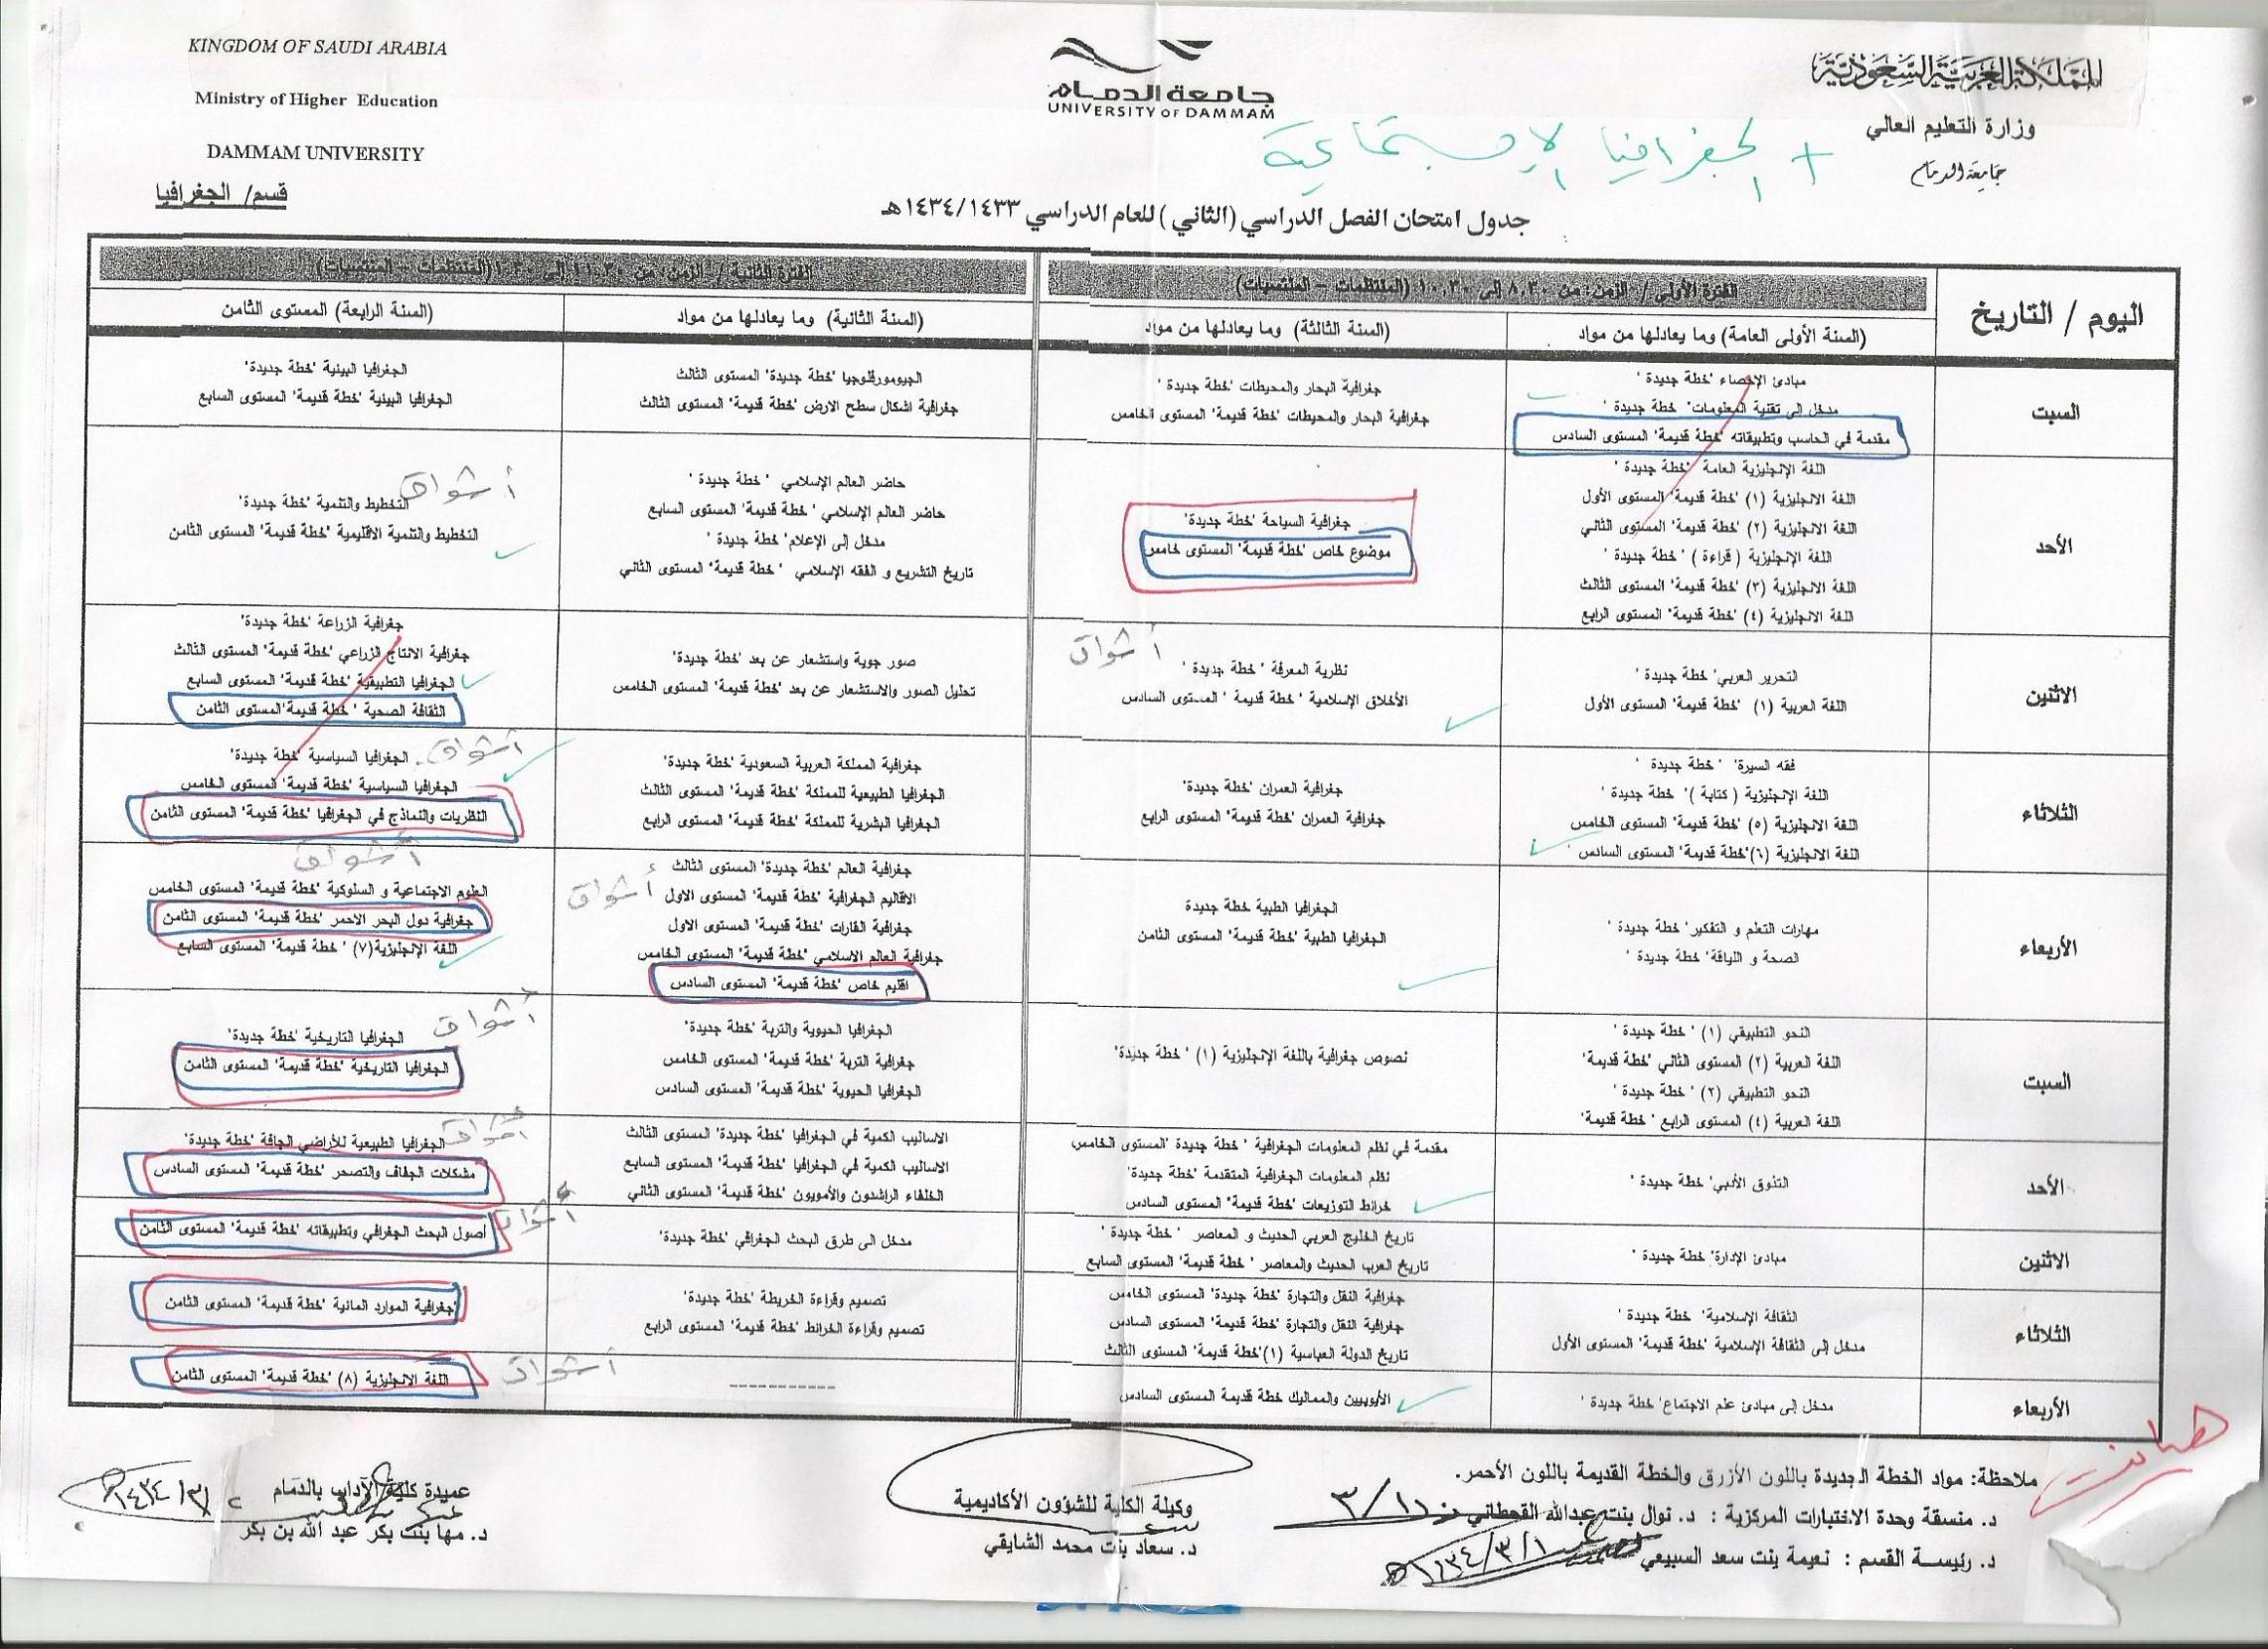 KINGDOM OF SAUDI ARABIA
Ministry of Higher Education
DAMMAM UNIVERSITY
قسم/ الجغرافيا
جامعة الدمام
UNIVERSITY OF DAMMAM
المملكة العربية السعودية
وزارة التعليم العالي
جامعة الدمام
+ الجغرافيا الاجتماعية
جدول امتحان الفصل الدراسي (الثاني) للعام الدراسي ١٤٣٤/١٤٣٣هـ
اليوم / التاريخ
الفترة الأولى / الزمن: من ٨.٣٠ إلى ١٠.٣٠ (المنتظمات – المنتسبات)
الفترة الثانية / الزمن: من ١١.٣٠ إلى ١.٣٠ (المنتظمات – المنتسبات)
(السنة الأولى العامة) وما يعادلها من مواد
(السنة الثالثة) وما يعادلها من مواد
(السنة الثانية) وما يعادلها من مواد
(السنة الرابعة) المستوى الثامن
السبت
مبادئ الإحصاء "خطة جديدة"
مدخل إلى تقنية المعلومات" خطة جديدة"
مقدمة في الحاسب وتطبيقاته "خطة قديمة" المستوى السادس
جغرافية البحار والمحيطات "خطة جديدة"
جغرافية البحار والمحيطات "خطة قديمة" المستوى الخامس
الجيومورفلوجيا "خطة جديدة" المستوى الثالث
جغرافية اشكال سطح الارض "خطة قديمة" المستوى الثالث
الجغرافيا البيئية "خطة جديدة"
الجغرافيا البيئية "خطة قديمة" المستوى السابع
الأحد
اللغة الإنجليزية العامة "خطة جديدة"
اللغة الانجليزية (١) "خطة قديمة" المستوى الأول
اللغة الانجليزية (٢) "خطة قديمة" المستوى الثاني
اللغة الإنجليزية (قراءة) " خطة جديدة"
اللغة الانجليزية (٣) "خطة قديمة" المستوى الثالث
اللغة الانجليزية (٤) "خطة قديمة" المستوى الرابع
جغرافية السياحة "خطة جديدة"
موضوع خاص "خطة قديمة" المستوى خامس
حاضر العالم الإسلامي " خطة جديدة"
حاضر العالم الإسلامي " خطة قديمة" المستوى السابع
مدخل إلى الإعلام" خطة جديدة"
تاريخ التشريع و الفقه الإسلامي " خطة قديمة" المستوى الثاني
أشواق
التخطيط والتنمية "خطة جديدة"
التخطيط والتنمية الاقليمية "خطة قديمة" المستوى الثامن
الاثنين
التحرير العربي" خطة جديدة"
اللغة العربية (١) "خطة قديمة" المستوى الأول
أشواق
نظرية المعرفة " خطة جديدة"
الأخلاق الإسلامية " خطة قديمة " المستوى السادس
صور جوية واستشعار عن بعد "خطة جديدة"
تحليل الصور والاستشعار عن بعد "خطة قديمة" المستوى الخامس
جغرافية الزراعة "خطة جديدة"
جغرافية الانتاج الزراعي "خطة قديمة" المستوى الثالث
الجغرافيا التطبيقية "خطة قديمة" المستوى السابع
الثقافة الصحية " خطة قديمة"المستوى الثامن
الثلاثاء
فقه السيرة" " خطة جديدة"
اللغة الإنجليزية (كتابة)" خطة جديدة"
اللغة الانجليزية (٥) "خطة قديمة" المستوى الخامس
اللغة الانجليزية (٦)"خطة قديمة" المستوى السادس
جغرافية العمران "خطة جديدة"
جغرافية العمران "خطة قديمة" المستوى الرابع
جغرافية المملكة العربية السعودية "خطة جديدة"
الجغرافيا الطبيعية للمملكة "خطة قديمة" المستوى الثالث
الجغرافيا البشرية للمملكة "خطة قديمة" المستوى الرابع
أشواق
الجغرافيا السياسية "خطة جديدة"
الجغرافيا السياسية "خطة قديمة" المستوى الخامس
النظريات والنماذج في الجغرافيا "خطة قديمة" المستوى الثامن
الأربعاء
مهارات التعلم و التفكير" خطة جديدة"
الصحة و اللياقة" خطة جديدة"
الجغرافيا الطبية خطة جديدة
الجغرافيا الطبية "خطة قديمة" المستوى الثامن
جغرافية العالم "خطة جديدة" المستوى الثالث
أشواق
الاقاليم الجغرافية "خطة قديمة" المستوى الاول
جغرافية القارات "خطة قديمة" المستوى الاول
جغرافية العالم الاسلامي "خطة قديمة" المستوى الخامس
اقليم خاص "خطة قديمة" المستوى السادس
أشواق
العلوم الاجتماعية و السلوكية "خطة قديمة" المستوى الخامس
جغرافية دول البحر الاحمر "خطة قديمة" المستوى الثامن
اللغة الإنجليزية(٧) " خطة قديمة" المستوى السابع
السبت
النحو التطبيقي (١) " خطة جديدة"
اللغة العربية (٢) المستوى الثاني "خطة قديمة"
النحو التطبيقي (٢) " خطة جديدة"
اللغة العربية (٤) المستوى الرابع "خطة قديمة"
نصوص جغرافية باللغة الإنجليزية (١) " خطة جديدة"
الجغرافيا الحيوية والتربة "خطة جديدة"
جغرافية التربة "خطة قديمة" المستوى الخامس
الجغرافيا الحيوية "خطة قديمة" المستوى السادس
أشواق
الجغرافيا التاريخية "خطة جديدة"
الجغرافيا التاريخية "خطة قديمة" المستوى الثامن
الأحد
التذوق الأدبي" خطة جديدة"
مقدمة في نظم المعلومات الجغرافية " خطة جديدة "المستوى الخامس
نظم المعلومات الجغرافية المتقدمة "خطة جديدة"
خرائط التوزيعات "خطة قديمة" المستوى السادس
الاساليب الكمية في الجغرافيا "خطة جديدة" المستوى الثالث
الاساليب الكمية في الجغرافيا "خطة قديمة" المستوى السابع
الخلفاء الراشدون والأمويون "خطة قديمة" المستوى الثاني
أشواق
الجغرافيا الطبيعية للأراضي الجافة "خطة جديدة"
مشكلات الجفاف والتصحر "خطة قديمة" المستوى السادس
الاثنين
مبادئ الإدارة" خطة جديدة"
تاريخ الخليج العربي الحديث و المعاصر " خطة جديدة"
تاريخ العرب الحديث والمعاصر " خطة قديمة" المستوى السابع
مدخل الى طرق البحث الجغرافي "خطة جديدة"
أشواق
أصول البحث الجغرافي وتطبيقاته "خطة قديمة" المستوى الثامن
الثلاثاء
الثقافة الإسلامية" خطة جديدة"
مدخل إلى الثقافة الإسلامية "خطة قديمة" المستوى الأول
جغرافية النقل والتجارة "خطة جديدة" المستوى الخامس
جغرافية النقل والتجارة "خطة قديمة" المستوى السادس
تاريخ الدولة العباسية (١)"خطة قديمة" المستوى الثالث
تصميم وقراءة الخريطة "خطة جديدة"
تصميم وقراءة الخرائط "خطة قديمة" المستوى الرابع
جغرافية الموارد المائية "خطة قديمة" المستوى الثامن
الأربعاء
مدخل إلى مبادئ علم الاجتماع" خطة جديدة"
الأيوبيين والمماليك خطة قديمة المستوى السادس
------------
أشواق
اللغة الانجليزية (٨) "خطة قديمة" المستوى الثامن
ملاحظة: مواد الخطة الجديدة باللون الأزرق والخطة القديمة باللون الأحمر.
د. منسقة وحدة الاختبارات المركزية : د. نوال بنت عبدالله القحطاني
د. رئيسة القسم : نعيمة بنت سعد السبيعي
وكيلة الكلية للشؤون الأكاديمية
د. سعاد بنت محمد الشايقي
عميدة كلية الآداب بالدمام
د. مها بنت بكر عبد الله بن بكر